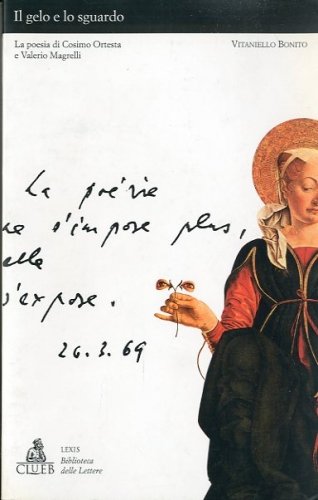 Il gelo e lo sguardo
La poesia di Cosimo Ortesta
e Valerio Magrelli
VITANIELLO BONITO
La poésie
ne s'impose plus,
elle
s'expose.
26.3.69
CLUEB
LEXIS
Biblioteca
delle Lettere